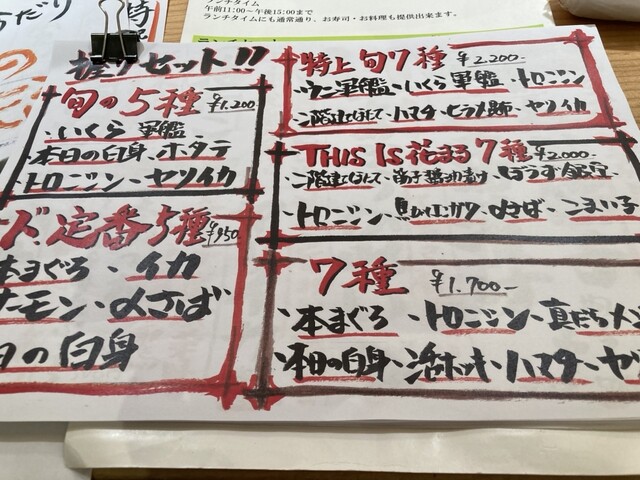 ランチタイム
午前11:00～午後15:00まで
ランチタイムにも通常通り、お寿司・お料理も提供出来ます。
握りセット!!
旬の5種 ¥1,200-
・いくら軍艦・
本日の白身・ホタテ
トロニシン・ヤリイカ
定番5種 ¥950
本まぐろ・イカ
・〆さば
の白身
特上旬7種 ¥2,200-
・ウニ軍艦・いくら軍艦・トロニシン
二階建てほたて・ハマチ・ヒラメ昆布・ヤリイカ
THIS IS 花まる7種 ¥2,000-
・二階建てほたて・
・トロニシン・〆さば・こまい子
7種 ¥1,700-
・本まぐろ・トロニシン・真だち
・本日の白身・活ホッキ・ハマチ・ヤ